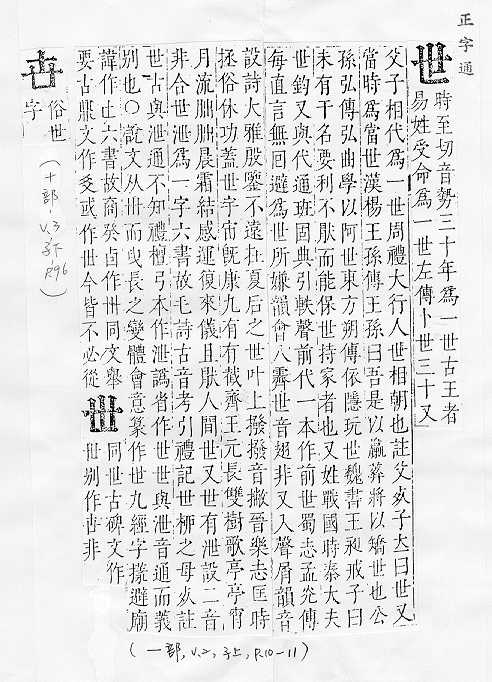 正字通
世 時至切音勢三十年爲一世古王者
易姓受命爲一世左傳卜世三十又
父子相代爲一世周禮大行人世相朝也註父歿子立曰世又
當時爲當世漢楊王孫傳王孫曰吾是以臝葬將以矯世也公
孫弘傳弘曲學以阿世東方朔傳依隱玩世魏書王昶戒子曰
未有干名要利不猒而能保世持家者也又姓戰國時秦大夫
世鈞又與代通班固典引軼聲前代一本作前世蜀志孟光傳
每直言無回避爲世所嫌韻會八霽世音翅非又入聲屑韻音
設詩大雅殷鑒不遠在夏后之世叶上撥撥音撇晉樂志匡時
拯俗休功蓋世宇宙旣康九有有截齊王元長雙樹歌亭亭宵
月流朏朏晨霜結感運復來儀且猒人間世又世有泄設二音
非合世泄爲一字六書故毛詩古音考引禮記世柳之母歿註
世古與泄通不知禮檀弓本作泄譌省作世世與泄音通而義
別也〇說文从卅而曳長之變體會意篆作世九經字㨾避廟
諱作丗六書故商癸卣作卅同文舉
要古鼎文作㞢或作世今皆不必從
卋 俗世
字
丗 同世古碑文作
丗别作卋非
(十部, V.3 子下 P.96)
(一部, V.2, 子上, P.10-11)